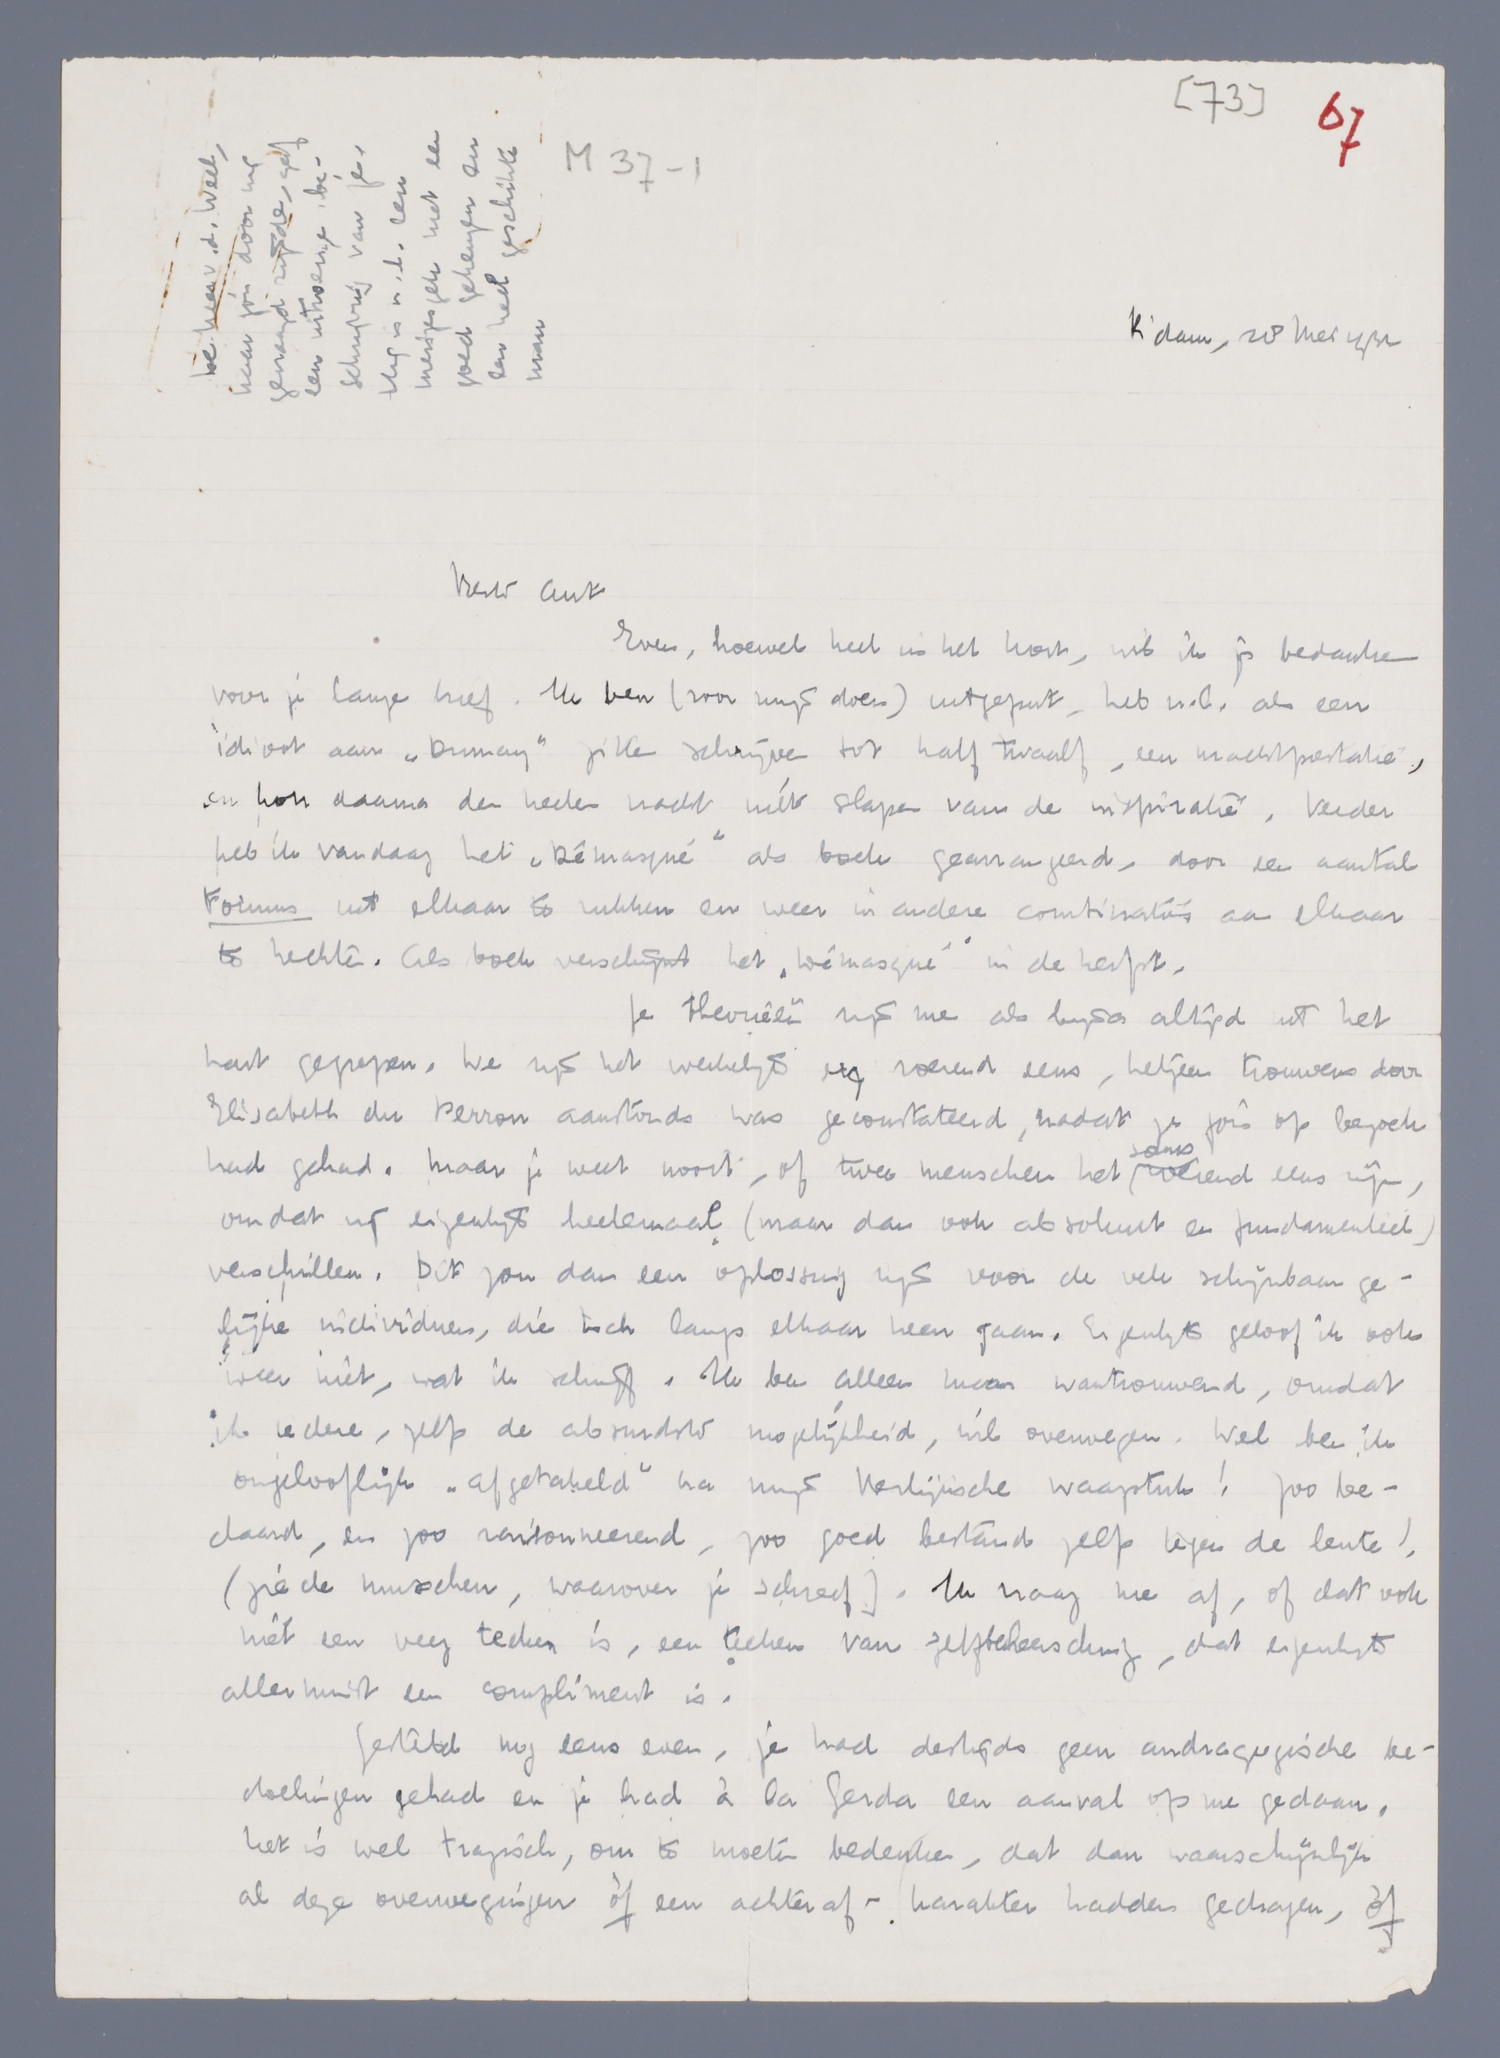 [73]
67
M 37-1
De heer v.d. Weel,
naar jou door mij
gevraagd, gaf
een intense be-
schrijving van je.
Hij is n.l. een
meisjesgek met een
goed geheugen en
een heel geschikte
man
R'dam, 28 Mei 1932
Beste Ant
Even, hoewel heel in het kort, wil ik je bedanken
voor je lange brief. Ik ben (voor mijn doen) uitgeput, heb n.l. als een
idioot aan „Dumay" zitten schrijven tot half twaalf, een machtprestatie,
en kon daarna den heelen nacht niet slapen van de inspiratie. Verder
heb ik vandaag het „Démasqué" als boek gearrangeerd, door een aantal
Forums uit elkaar te rukken en weer in andere combinaties aan elkaar
te hechten. Als boek verschijnt het „Démasqué" in de herfst.
Je theorieën zijn me als bijna altijd uit het
hart gegrepen. We zijn het werkelijk erg roerend eens, hetgeen trouwens door
Elisabeth du Perron aanstonds was geconstateerd, nadat ze jou op bezoek
had gehad. Maar je weet nooit, of twee menschen het soms roerend eens zijn,
omdat zij eigenlijk heelemaal (maar dan ook absoluut en fundamenteel)
verschillen. Dit zou dan een oplossing zijn voor de vele schijnbaar ge-
lijke individuen, die toch langs elkaar heen gaan. Eigenlijk geloof ik ook
weer niet, wat ik schrijf. Ik ben alleen maar wantrouwend, omdat
ik iedere, zelfs de absurdste mogelijkheid, wil overwegen. Wel ben ik
ongelooflijk „afgetakeld" na mijn Berlijnsche waagstuk! Zoo be-
daard, en zoo raisonneerend, zoo goed bestand zelfs tegen de lente!
(zie de musschen, waarover je schreef). Ik vraag me af, of dat ook
niet een veeg teeken is, een teeken van zelfbeheersching, dat eigenlijk
allerminst een compliment is.
Gesteld nog eens even, je had destijds geen andragogische be-
doelingen gehad en je had à la Gerda een aanval op me gedaan.
Het is wel tragisch, om te moeten bedenken, dat dan waarschijnlijk
al deze overwegingen òf een achteraf-karakter hadden gedragen, òf